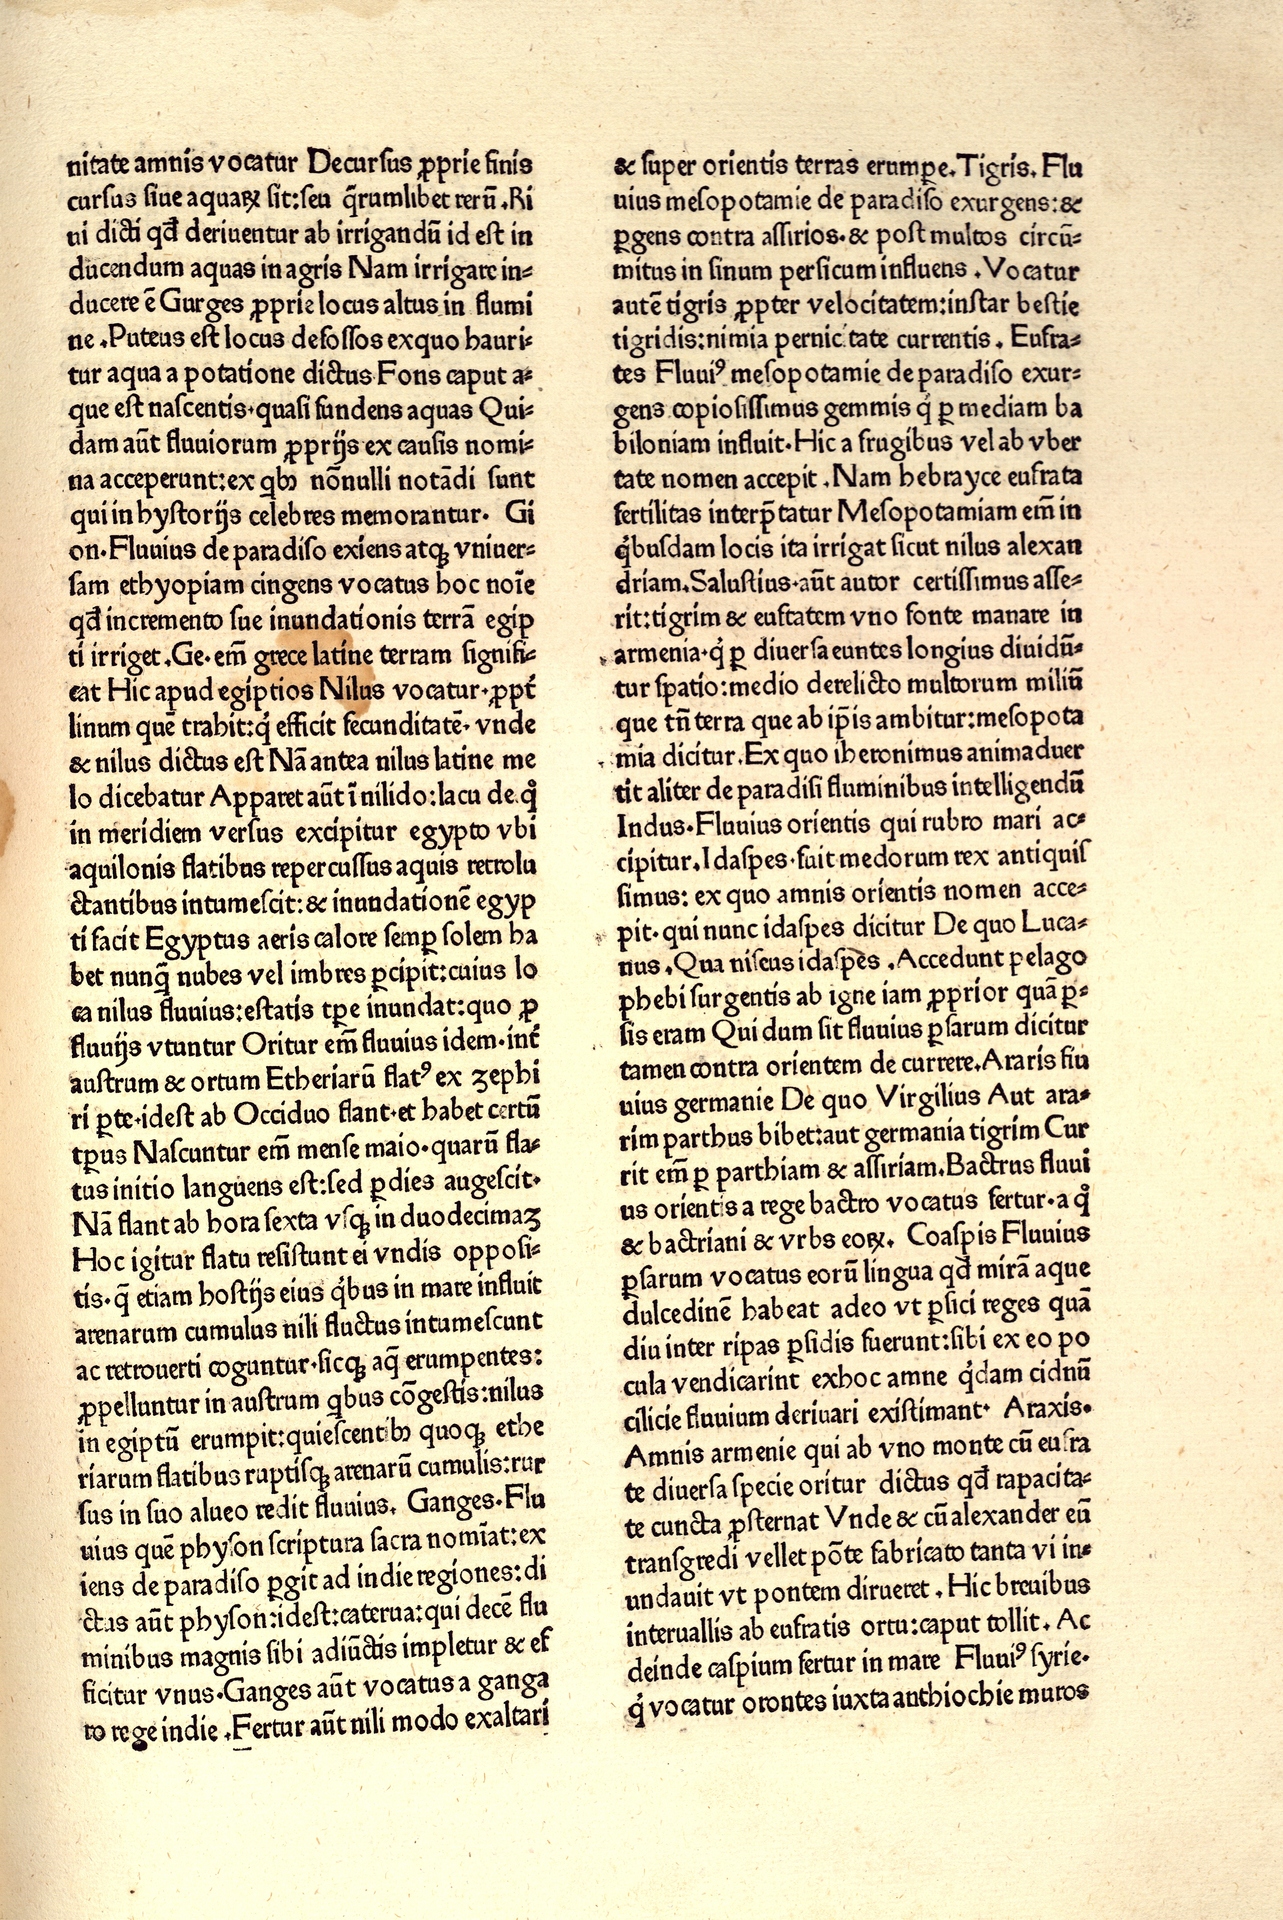 nitate amnis vocatur Decursus ꝓprie finis
cursus siue aquaꝝ sit:seu q̄rumlibet rerū .Ri
ui dicti qđ deriuentur ab irrigandū id est in
ducendum aquas in agris Nam irrigare in⸗
ducere ē Gurges ꝓprie locus altus in flumi
ne .Puteus est locus defossos exquo hauri⸗
tur aqua a potatione dictus Fons caput a⸗
que est nascentis·quasi fundens aquas Qui⸗
dam aūt fluuiorum ꝓprijs ex causis nomi⸗
na acceperunt:ex qbꝫ nōnulli notādi sunt
qui in hystorijs celebres memorantur· Gi
on·Fluuius de paradiso exiens atqꝫ vniuer⸗
sam ethyopiam cingens vocatus hoc noīe
qđ incremento sue inundationis terrā egip
ti irriget .Ge·em̄ grece latine terram signifi⸗
cat Hic apud egiptios Nilus vocatur·ꝓpt̄
linum quē trahit:q̇ efficit fecunditatē· vnde
& nilus dictus est Nā antea nilus latine me
lo dicebatur Apparet aūt ī nilido:lacu de qͦ
in meridiem versus excipitur egypto vbi
aquilonis flatibus repercussus aquis retrolu
ctantibus intumescit:& inundationē egyp
ti facit Egyptus aeris calore semꝑ solem ha
bet nunq̄ nubes vel imbres ꝑcipit:cuius lo
ca nilus fluuius:estatis tꝑe inundat:quo ꝓ
fluuijs vtuntur Oritur em̄ fluuius idem·int̄
austrum & ortum Etheriarū flatꝰ ex zephi
ri ꝑte·idest ab Occiduo flant·et habet certū
tꝑus Nascuntur em̄ mense maio·quarū fla⸗
tus initio languens est:sed ꝑ dies augescit·
Nā flant ab hora sexta vsqꝫ in duodecimaꝫ
Hoc igitur flatu resistunt ei vndis opposi⸗
tis·q̄ etiam hostijs eius q̇bus in mare influit
arenarum cumulus nili fluctus intumescunt
ac retrouerti coguntur·sicqꝫ aq̄ erumpentes:
ꝓpelluntur in austrum qbus cōgestis:nilus
in egiptū erumpit:quiescentibꝫ quoqꝫ ethe
riarum flatibus ruptisqꝫ arenarū cumulis:rur
sus in suo alueo redit fluuius. Ganges·Flu
uius quē physon scriptura sacra nomīat:ex
iens de paradiso ꝑgit ad indie regiones:di
ctus aūt physon:idest:caterua:qui decē flu
minibus magnis sibi adiūctis impletur & ef
ficitur vnus·Ganges aūt vocatus a ganga
ro rege indie .Fertur aūt nili modo exaltari
& super orientis terras erumpe.Tigris. Flu
uius mesopotamie de paradiso exurgens:&
ꝑgens contra assirios·& post multos circū⸗
mitus in sinum persicum influens .Vocatur
autē tigris ꝓpter velocitatem:instar bestie
tigridis:nimia pernicitate currentis . Eufra⸗
tes Fluuiꝰ mesopotamie de paradiso exur⸗
gens copiosissimus gemmis q̇ ꝑ mediam ba
biloniam influit·Hic a frugibus vel ab vber
tate nomen accepit .Nam hebrayce eufrata
fertilitas interp̄tatur Mesopotamiam em̄ in
q̇busdam locis ita irrigat sicut nilus alexan
driam.Salustius·aūt autor certissimus asse⸗
rit:tigrim & eufratem vno fonte manare in
armenia·q̇ ꝑ diuersa euntes longius diuidū⸗
tur spatio:medio derelicto multorum miliū
que tn̄ terra que ab ip̄is ambitur:mesopota
mia dicitur.Ex quo iheronimus animaduer
tit aliter de paradisi fluminibus intelligendū
Indus·Fluuius orientis qui rubro mari ac⸗
cipitur.Idaspes·fuit medorum rex antiquis
simus: ex quo amnis orientis nomen acce⸗
pit·qui nunc idaspes dicitur De quo Luca⸗
nus .Qua niseus idaspes .Accedunt pelago
phebi surgentis ab igne iam ꝓprior quā ꝑ⸗
sis eram Qui dum sit fluuius ꝑsarum dicitur
tamen contra orientem de currere.Araris flu
uius germanie De quo Virgilius Aut ara⸗
rim parthus bibet:aut germania tigrim Cur
rit em̄ ꝑ parthiam & assiriam.Bactrus fluui
us orientis a rege bactro vocatus fertur·a qͦ
& bactriani & vrbs eoꝝ. Coaspis Fluuius
ꝑsarum vocatus eorū lingua qđ mirā aque
dulcedinē habeat adeo vt ꝑsici reges quā
diu inter ripas ꝑsidis fuerunt:sibi ex eo po
cula vendicarint exhoc amne q̇dam cidnū
cilicie fluuium deriuari existimant· Araxis·
Amnis armenie qui ab vno monte cū eufra
te diuersa specie oritur dictus qđ rapacita⸗
te cuncta ꝓsternat Vnde & cū alexander eū
transgredi vellet pōte fabricato tanta vi in⸗
undauit vt pontem dirueret . Hic breuibus
interuallis ab eufratis ortu:caput tollit . Ac
deinde caspium fertur in mare Fluuiꝰ syrie·
q̇ vocatur orontes iuxta anthiochie muros